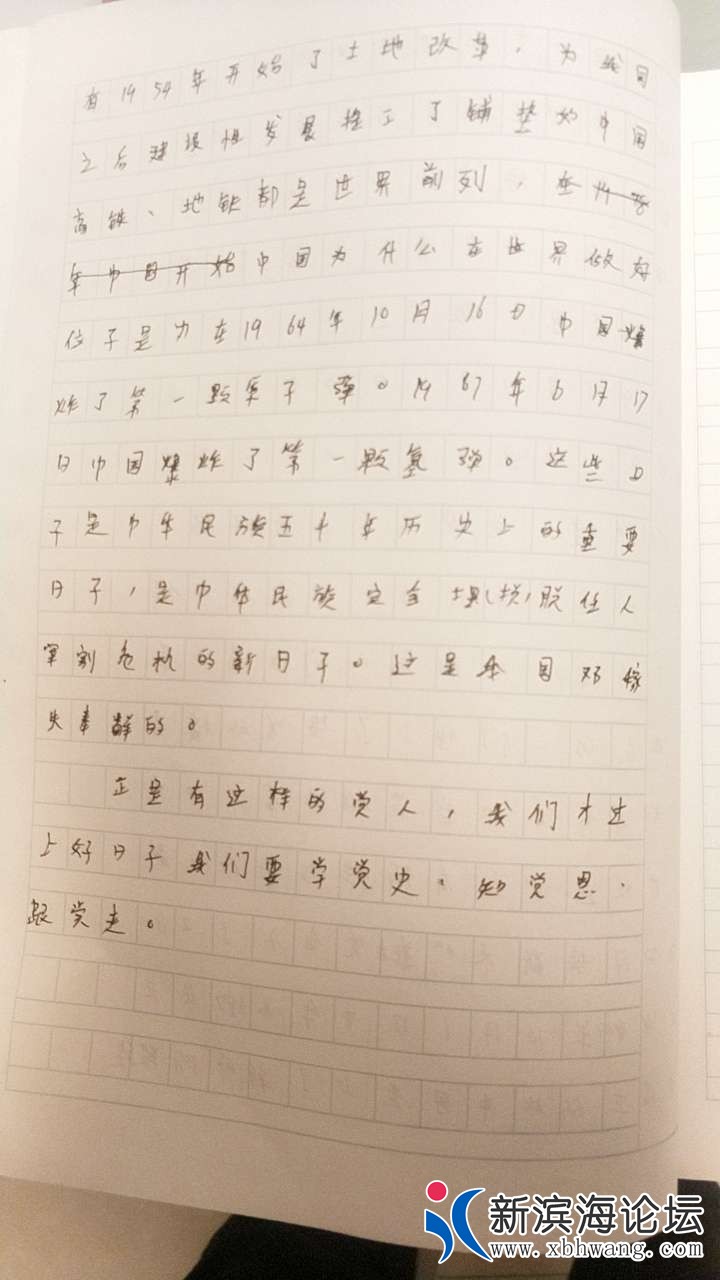 有1954年开始了土地改革，为我国
之后建设和发展推工了铺垫如中国
高铁、地铁都是世界前列，在
年中国开始中国为什么在世界做好
位子是力在1964年10月16日中国爆
炸了第一颗原子弹。1967年6月17
日中国爆炸了第一颗氢弹。这些日
子是中华民族五十年历史上的重要
日子，是中华民族完全 脱任人
宰割危机的新日子。这是 国邓稼
先奉献的。
正是有这样的党人，我们才过
上好日子我们要学党史、知党恩、
跟党走。
新滨海论坛
www.xbhwang.com